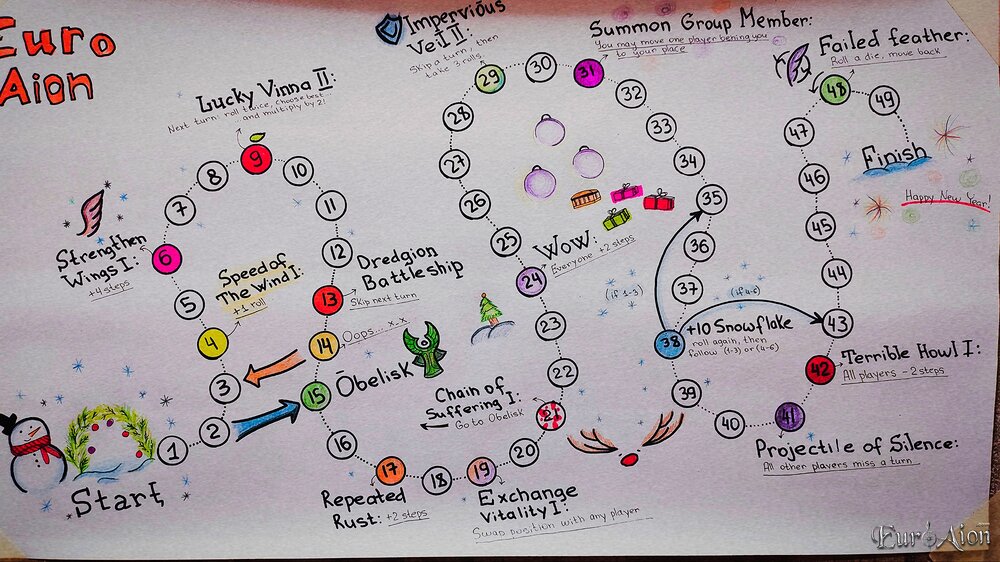 Euro
Aion
Lucky Vinna II:
Next turn: roll twice, choose best...
...and multiply by 2!
Impervious
Veil II:
Skip a turn, then
take 3 rolls
Summon Group Member:
You may move one player bening you
to your place
Failed feather:
Roll a die, move back
Strengthen
Wings I:
+4 steps
Speed of
The Wind I:
+1 roll
Dredgion
Battleship
Skip next turn
Oops... x_x
Obelisk
Wow:
Everyone +2 steps
Chain of
Suffering I:
Go to Obelisk
Repeated
Rust: +2 steps
Exchange
Vitality I:
Swap position with any player
(if 1-3)
(if 4-6)
+10 Snowflake
roll again, then
follow (1-3) or (4-6)
Terrible Howl I:
All players -2 steps
Projectile of Silence:
All other players miss a turn
Start
1
2
3
4
5
6
7
8
9
10
11
12
13
14
15
16
17
18
19
20
21
22
23
24
25
26
27
28
29
30
31
32
33
34
35
36
37
38
39
40
41
42
43
44
45
46
47
48
49
Finish
Happy New Year!
EuroAion